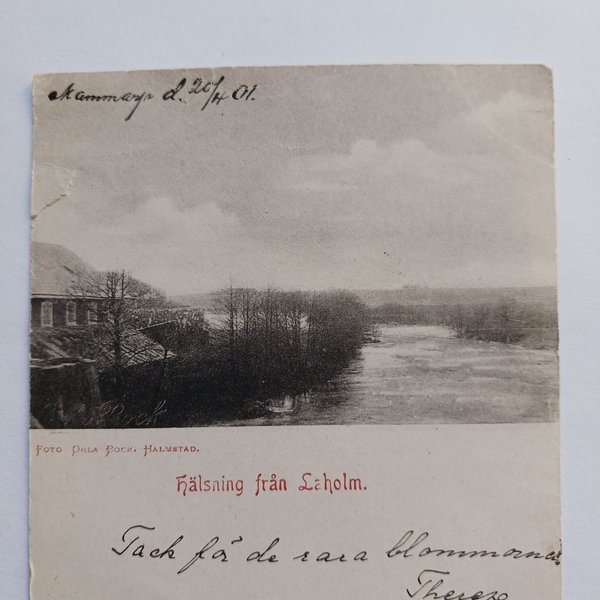 d. 20/4 01.
FOTO ORLA BOCK, HALMSTAD.
Hälsning från Laholm.
Tack för de rara blommorna
Therese